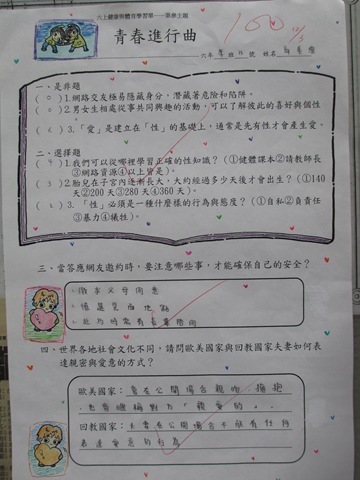 六上健康與體育學習單——第參主題
100
青春進行曲
六年 班 號 姓名:
一、是非題
( ○ ) 1.網路交友極易隱藏身分,潛藏著危險和陷阱。
( ○ ) 2.男女生相處從事共同興趣的活動,可以了解彼此的喜好與個性
。
( ✗ ) 3.「愛」是建立在「性」的基礎上,通常是先有性才會產生愛。
二、選擇題
( 4 ) 1.我們可以從哪裡學習正確的性知識?(①健體課本②請教師長
③網路資源④以上皆是)。
( 3 ) 2.胎兒在子宮內逐漸長大,大約經過多少天後才會出生?(①140
天②200 天③280 天④360 天)。
( 2 ) 3.「性」必須是一種什麼樣的行為與態度?(①自私②負責任
③暴力④犧牲)。
三、當答應網友邀約時,要注意哪些事,才能確保自己的安全?
徵求父母同意
慎選見面地點
赴約時需有長輩陪同
四、世界各地社會文化不同,請問歐美國家與回教國家夫妻如何表
達親密與愛意的方式?
歐美國家:會在公開場合親吻、擁抱
,也會暱稱對方「親愛的」。
回教國家:夫妻在公開場合不能有任何
表達愛意的行為